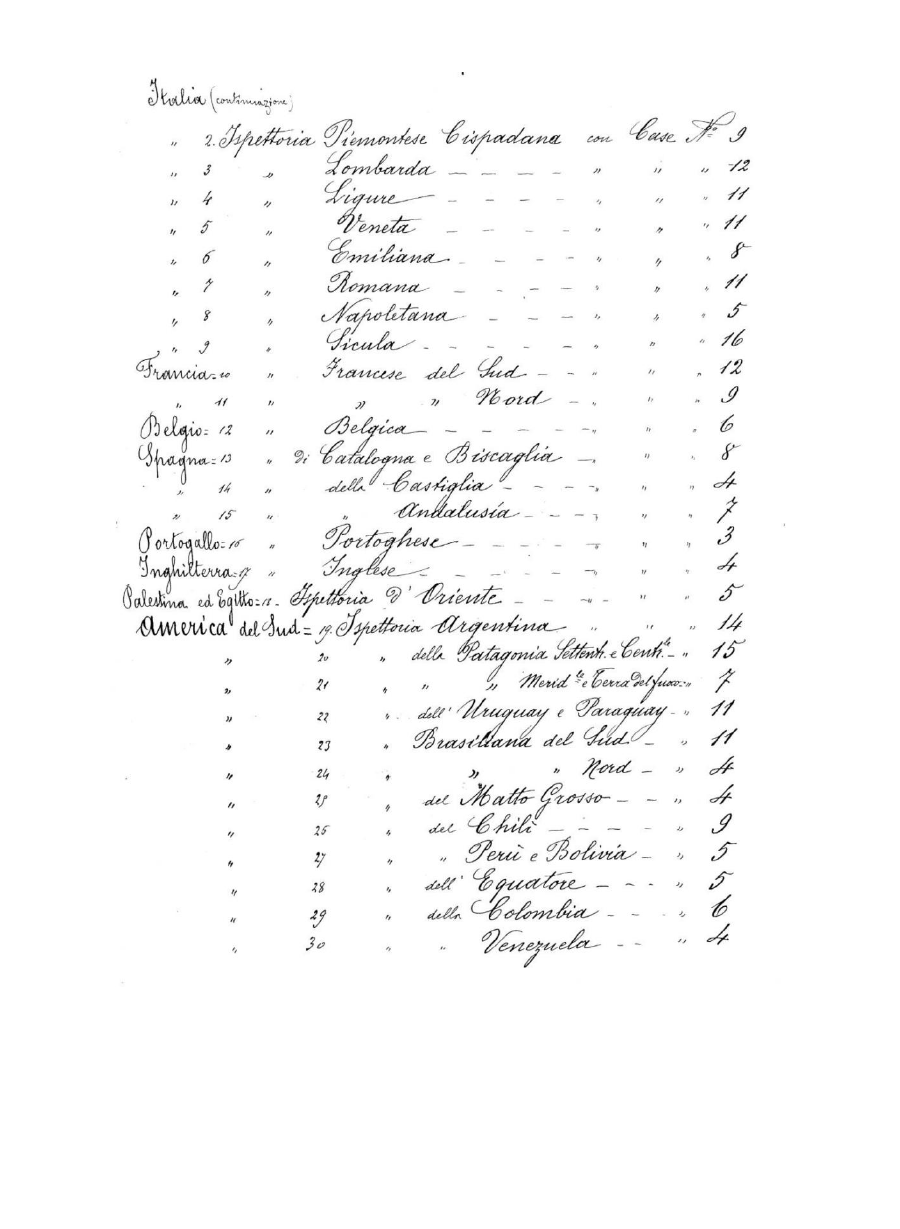 Italia (continuazione)
" 2. Ispettoria Piemontese Cispadana con Case N.º 9
" 3 " Lombarda — — — — — " " " 12
" 4 " Ligure — — — — — " " " 11
" 5 " Veneta — — — — — " " " 11
" 6 " Emiliana — — — — " " " 8
" 7 " Romana — — — — — " " " 11
" 8 " Napoletana — — — — " " " 5
" 9 " Sicula — — — — — " " " 16
Francia = 10 " Francese del Sud — — " " " 12
" 11 " " " Nord — " " " 9
Belgio = 12 " Belgica — — — — — " " " 6
Spagna = 13 " di Catalogna e Biscaglia — " " " 8
" 14 " della Castiglia — — — — " " " 4
" 15 " " Andalusía — — — — " " " 7
Portogallo = 16 " Portoghese — — — — — " " " 3
Inghilterra = 17 " Inglese — — — — — " " " 4
Palestina ed Egitto = 18 - Ispettoria d'Oriente — — — " " " 5
America del Sud = 19. Ispettoria Argentina " " " 14
" 20 " della Patagonia Settent. e Centr.le — " 15
" 21 " " " Merid.le e Terra del fuoco — " 7
" 22 " dell' Uruguay e Paraguay - " 11
" 23 " Brasiliana del Sud — " 11
" 24 " " " Nord — " 4
" 25 " del Matto Grosso — — " 4
" 25 " del Chilì — — — — " 9
" 27 " " Perù e Bolivia — " 5
" 28 " dell' Equatore — — - " 5
" 29 " della Colombia — - - " 6
" 30 " " Venezuela — - " 4